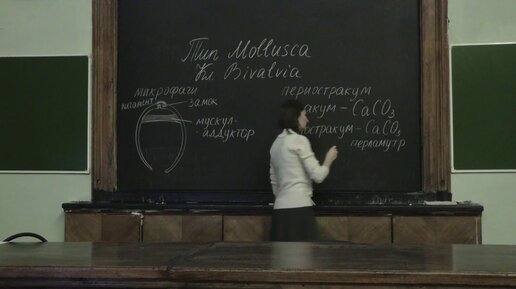 Тип Mollusca
Кл. Bivalvia
микрофаги
лигамент
замок
мускул-
аддуктор
периостракум
акум - CaCO₃
остракум - CaCO₃
перламутр